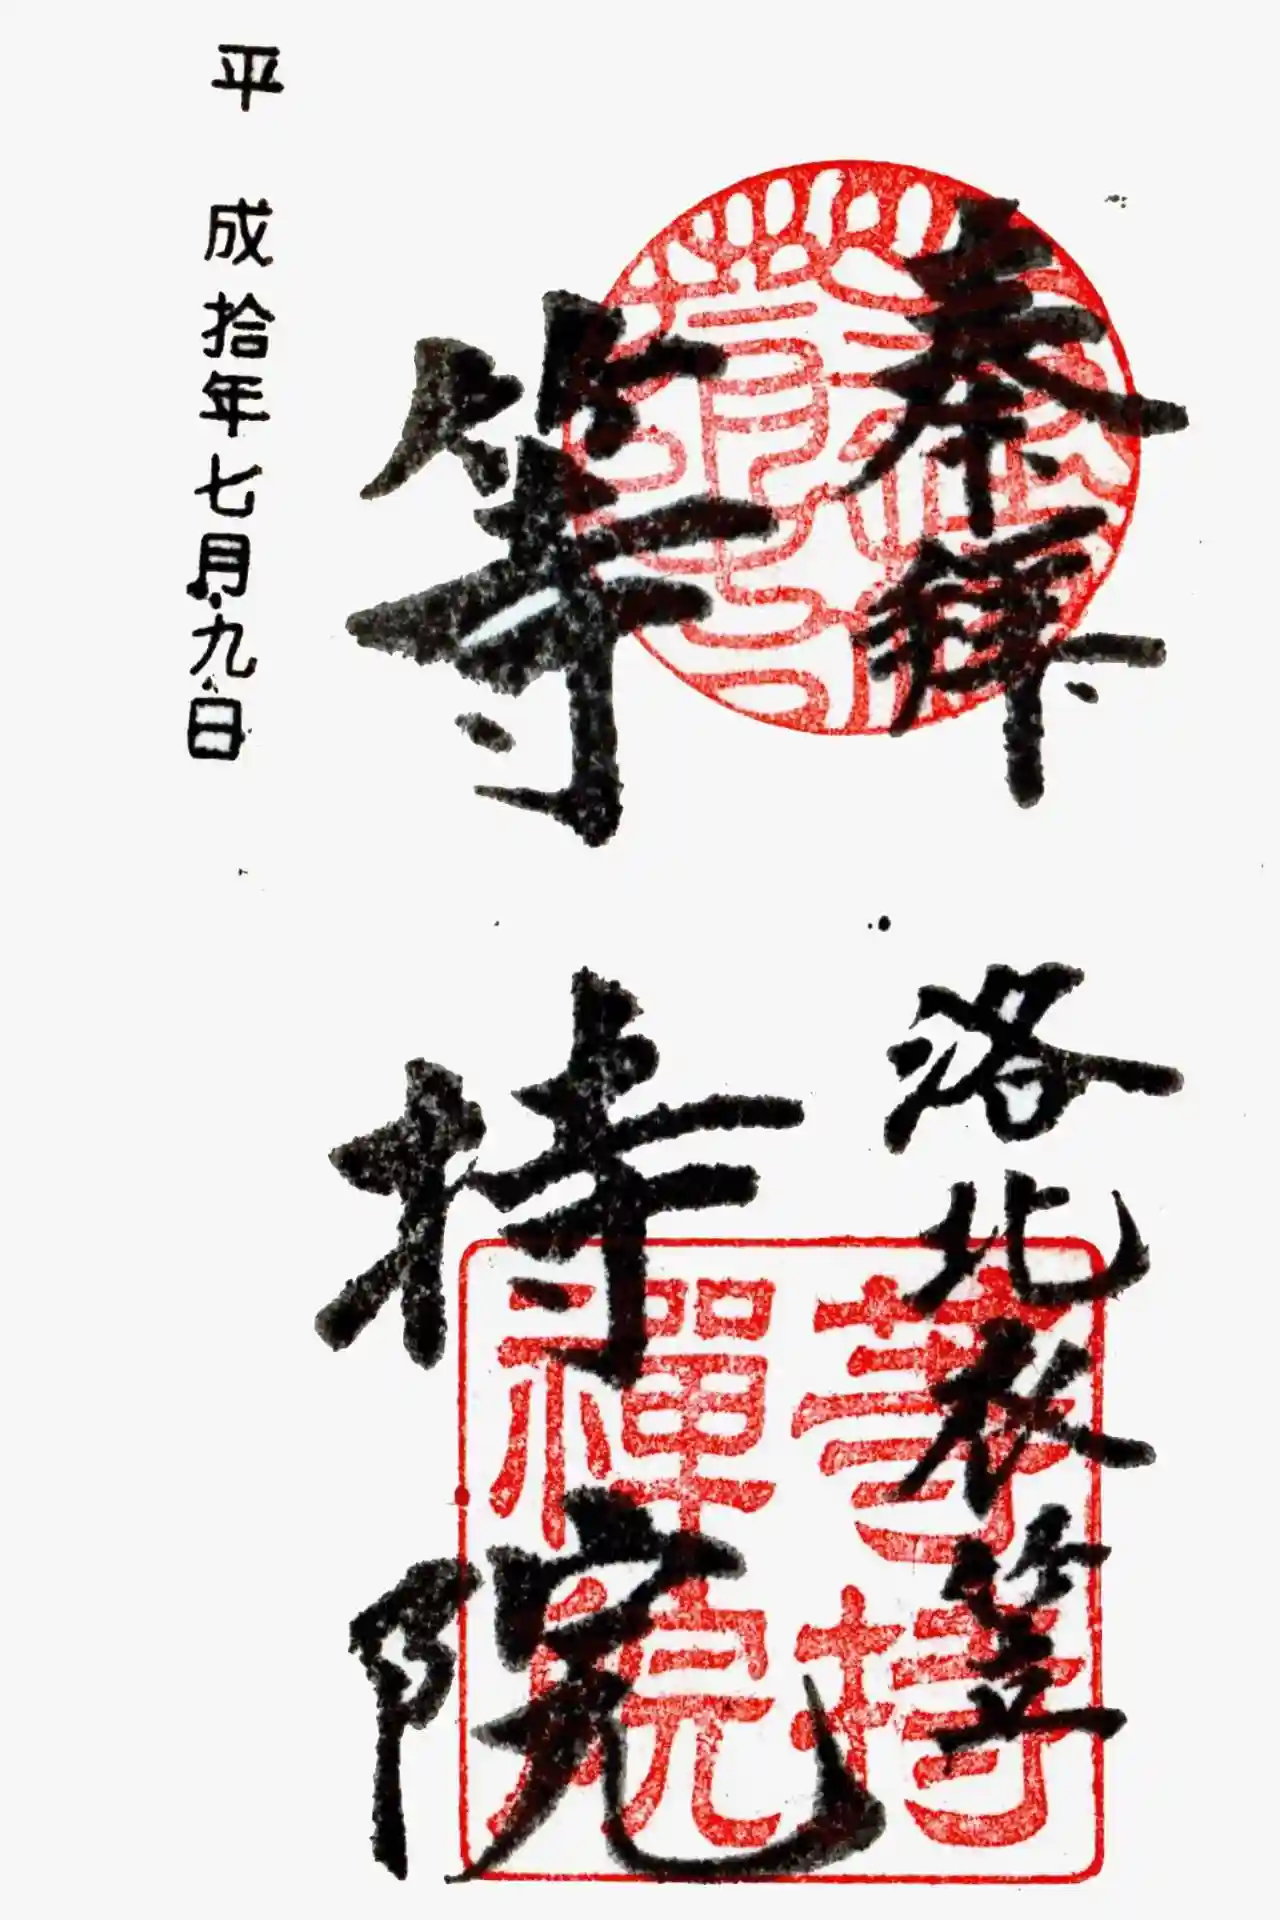 奉拝
洛北衣笠
等持院
平成拾年七月九日
等持
禅院